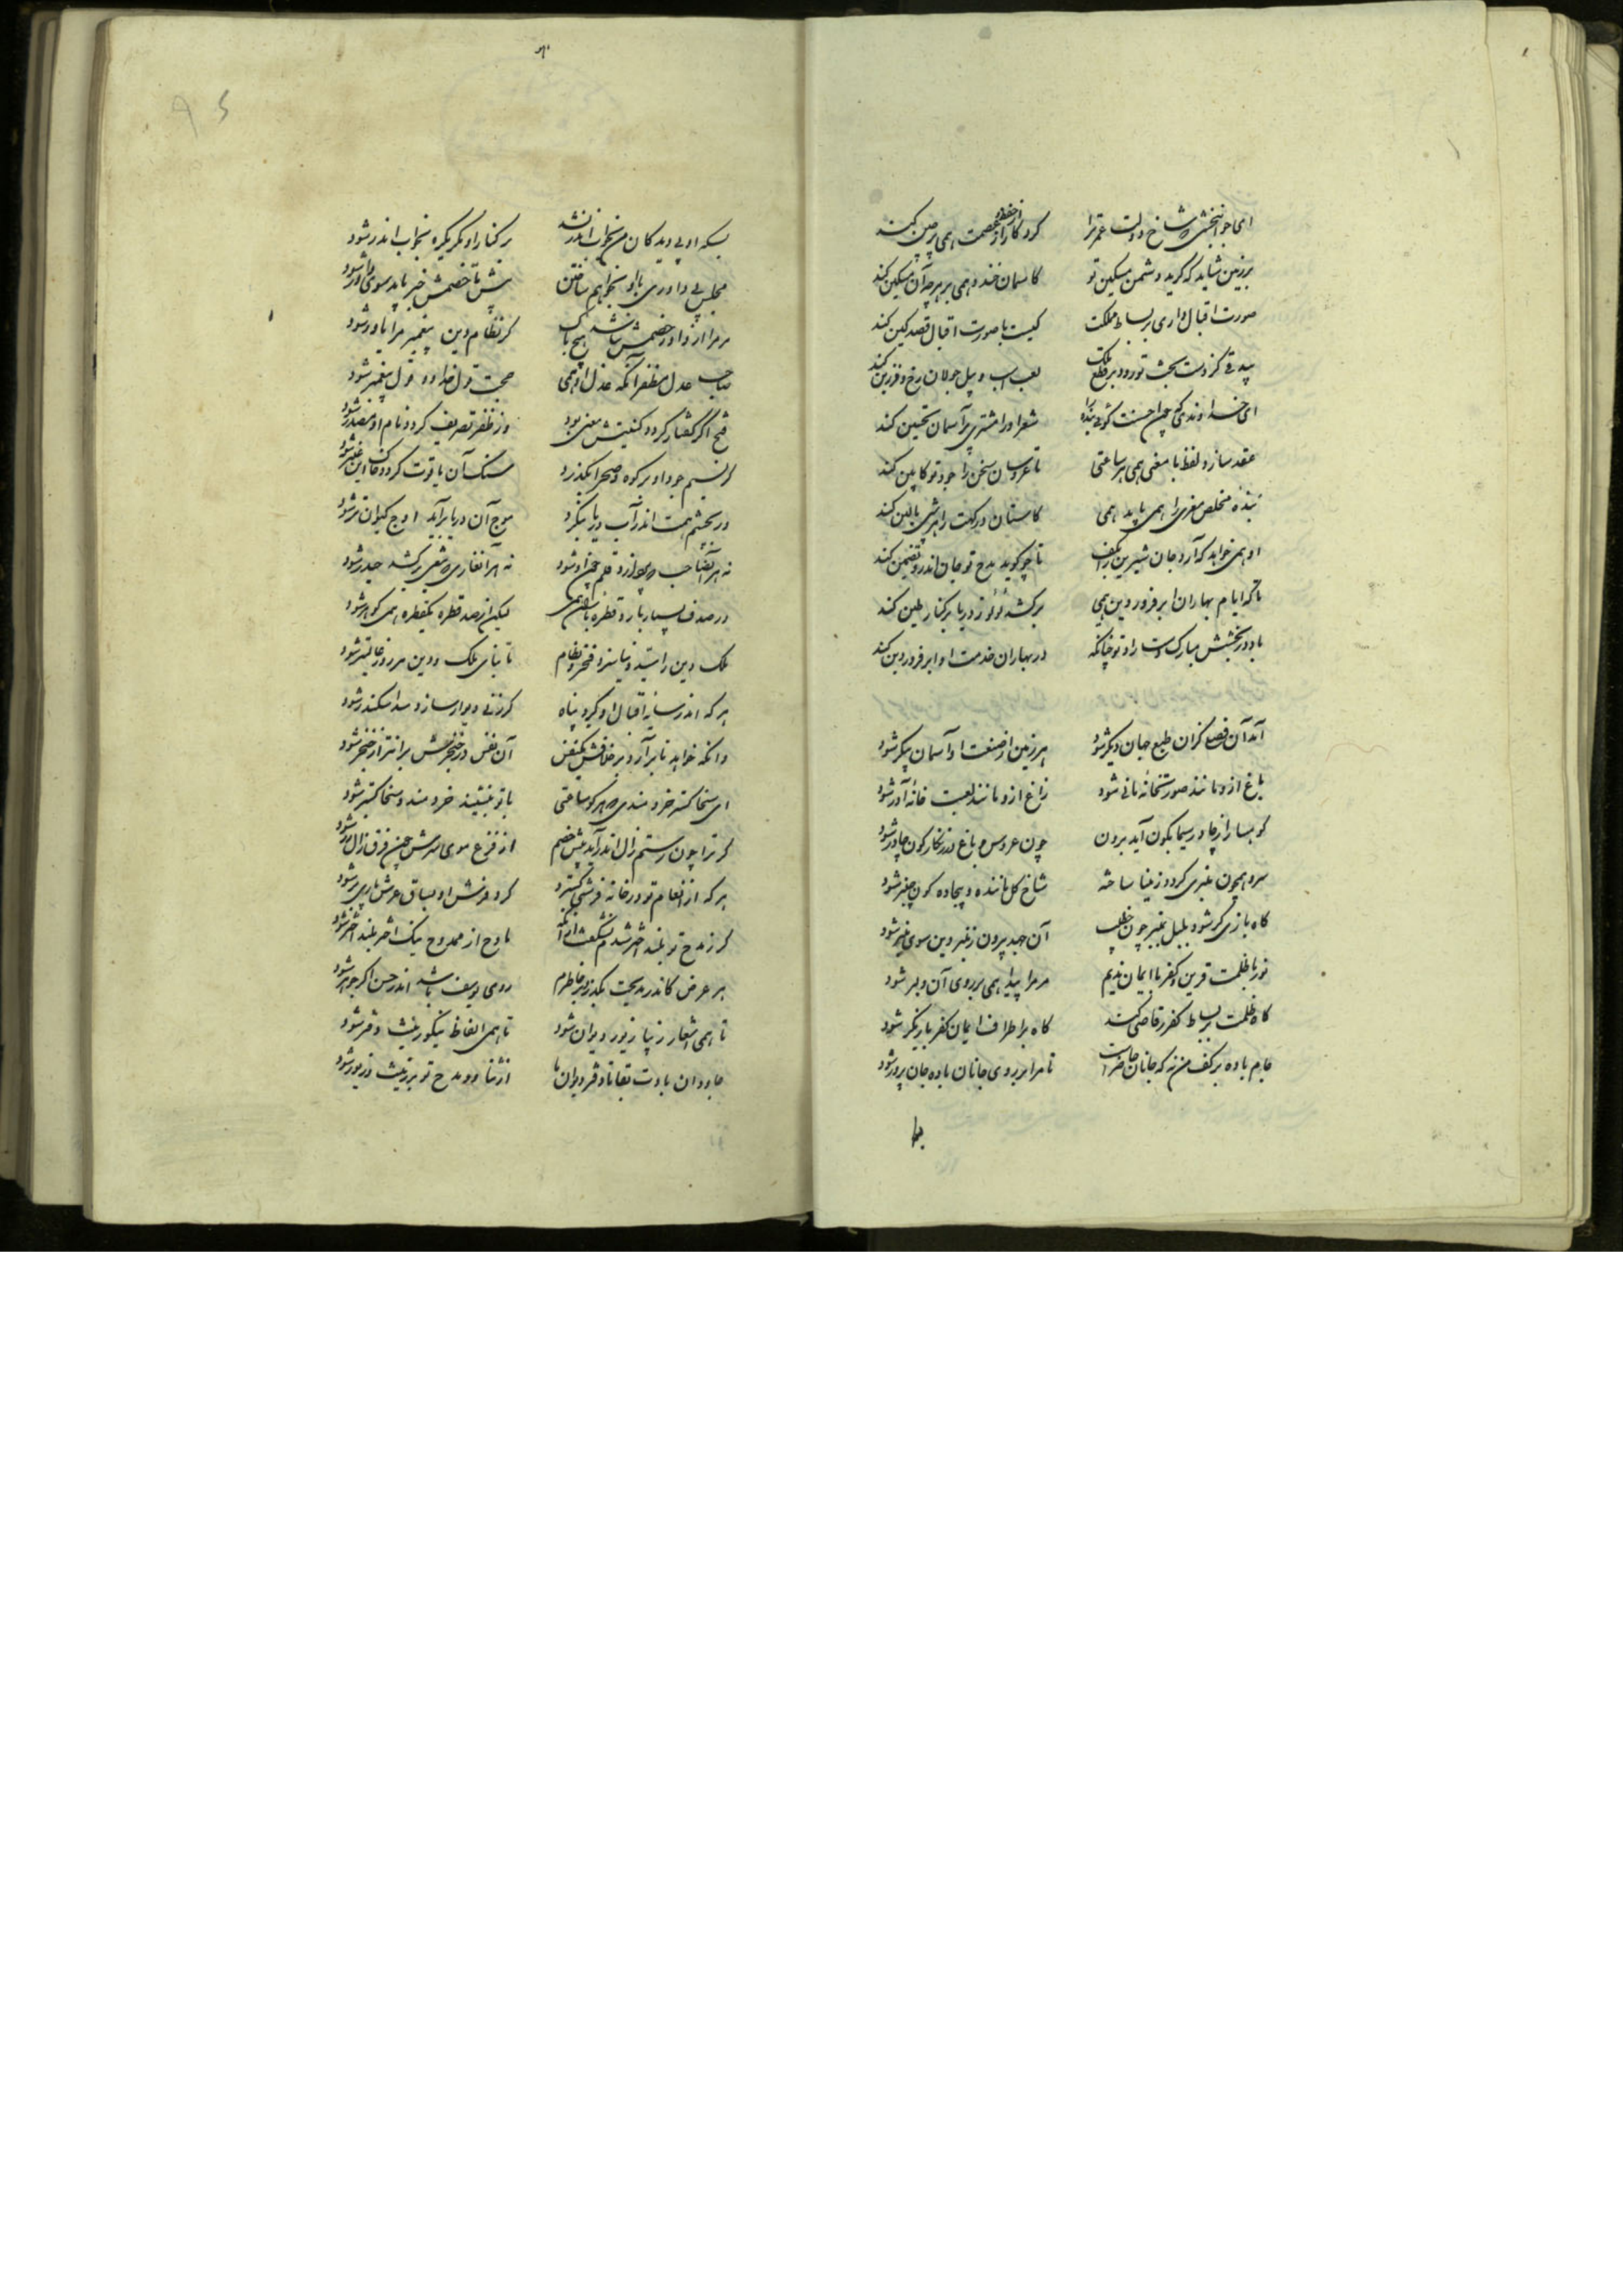 ای جوانبختی که شاخ دولت عمر ترا
کردگار از حفظ و عصمت همی پرچین کند
بر زمین شاید که گرید دشمن مسکین تو
کاسمان خندد همی بر هرچه آن مسکین کند
صورت اقبال داری بر بساط مملکت
کیست با صورت اقبال قصد کین کند
بیدقی کز دست بخت تو رود بر نطع ملک
لعب اسب و پیل و جولان رخ و فرزین کند
ای خداوندی که چون احسنت گوئی بنده را
شعر او را مشتری بر آسمان تحسین کند
عقد سازد لفظ با معنی همی هر ساعتی
تا عروسان سخن را جود تو کابین کند
بنده مخلص معزی را همی باید همی
کاستان درگهت را هر شبی بالین کند
او همی خواهد که آرد جان شیرین بر کف
تا چو گوید مدح تو جان اندرو تضمین کند
تا که ایام بهاران ابر فروردین همی
برکشد لؤلؤ ز دریا بر کنار طین کند
باد در بخشش مبارک دست راد تو چنانکه
در بهاران خدمت او ابر فروردین کند
آمد آن فصلی کزان طبع جهان دیگر شود
هر زمین از صنعت او آسمان پیکر شود
باغ ازو مانند صورتخانه مانی شود
زاغ ازو مانند لعبت خانه آزر شود
کوهسار از چادر سیمابگون آید برون
چون عروس و باغ در زنگارگون چادر شود
سرو همچون منبری گردد ز مینا ساخته
شاخ گل ماننده بیجاده گون چنبر شود
گاه بازی گر شود بلبل بمنبر چون خطیب
آن جهد بیرون ز چنبر وین سوی منبر شود
نور با ظلمت قرین و کفر با ایمان ندیم
مر مرا پیدا همی بر روی آن دلبر شود
گاه ظلمت بر بساط کفر رقاصی کند
گاه بر اطراف ایمان کفر بازیگر شود
جام باده بر کف من نه که جانان حاضر است
تا مرا بر روی جانان باده جان پرور شود
بسکه او بی دیدگان من بخواب اندر نشد
بر کنار او مگر یکره بخواب اندر شود
مجلس بی داوری با او بخواهم ساختن
پیش تا خصمش خبر یابد سوی داور شود
مر مرا از داور و خصمش نباشد هیچ باک
گر نظام دین پیغمبر مرا یاور شود
صاحب عدل مظفر آنکه عدل او همی
حجت قول خدا و قول پیغمبر شود
فتح اگر گفتار گردد کنیتش معنی بود
ور ظفر تصریف گردد نام او مصدر شود
گر نسیم جود او بر کوه و صحرا بگذرد
سنگ آن یاقوت گردد خاک این عنبر شود
ور بچشم همت اندر آب دریا بنگرد
موج آن دریا برآید اوج کیوان تر شود
نه هر آنصاحب که بردارد قلم چون او شود
نه هر آنغازی که شمشیر برکشد حیدر شود
در صدف بسیار بارد قطره باران همی
لیکن از صد قطره یکقطره همی گوهر شود
ملک و دین را سید دنیا سزد فخر و نظام
تا بنای ملک و دین هر روز عالیتر شود
هر که اندر سایه اقبال او گیرد پناه
گر زنی دیوار سازد سد اسکندر شود
وانکه خواهد تا برآرد بر خلافش یکنفس
آن نفس در حنجرش برانتر از خنجر شود
ای سخاگستر خردمندی که هر کو ساعتی
با تو بنشیند خردمند و سخاگستر شود
گر ترا چون رستم زال اندر آید پیش خصم
از فزع موی سرش چون فرق زال زر شود
هر که از انعام تو در خانه فرشی گسترد
گرد فرش او بساق عرش باری بر شود
گر ز مدح تو بلند اختر شدم نشگفت از آنک
مادح از ممدوح نیک اختر بلند اختر شود
هر عرض کاندر مدیحت بگذرد بر خاطرم
روی یوسف باشد اندر حسن اگر جوهر شود
تا همی اشعار زیبا زیور دیوان شود
تا همی الفاظ نیکو زینت دفتر شود
جاودان بادت بقا تا دفتر و دیوان ما
از ثنا و مدح تو با زینت و زیور شود